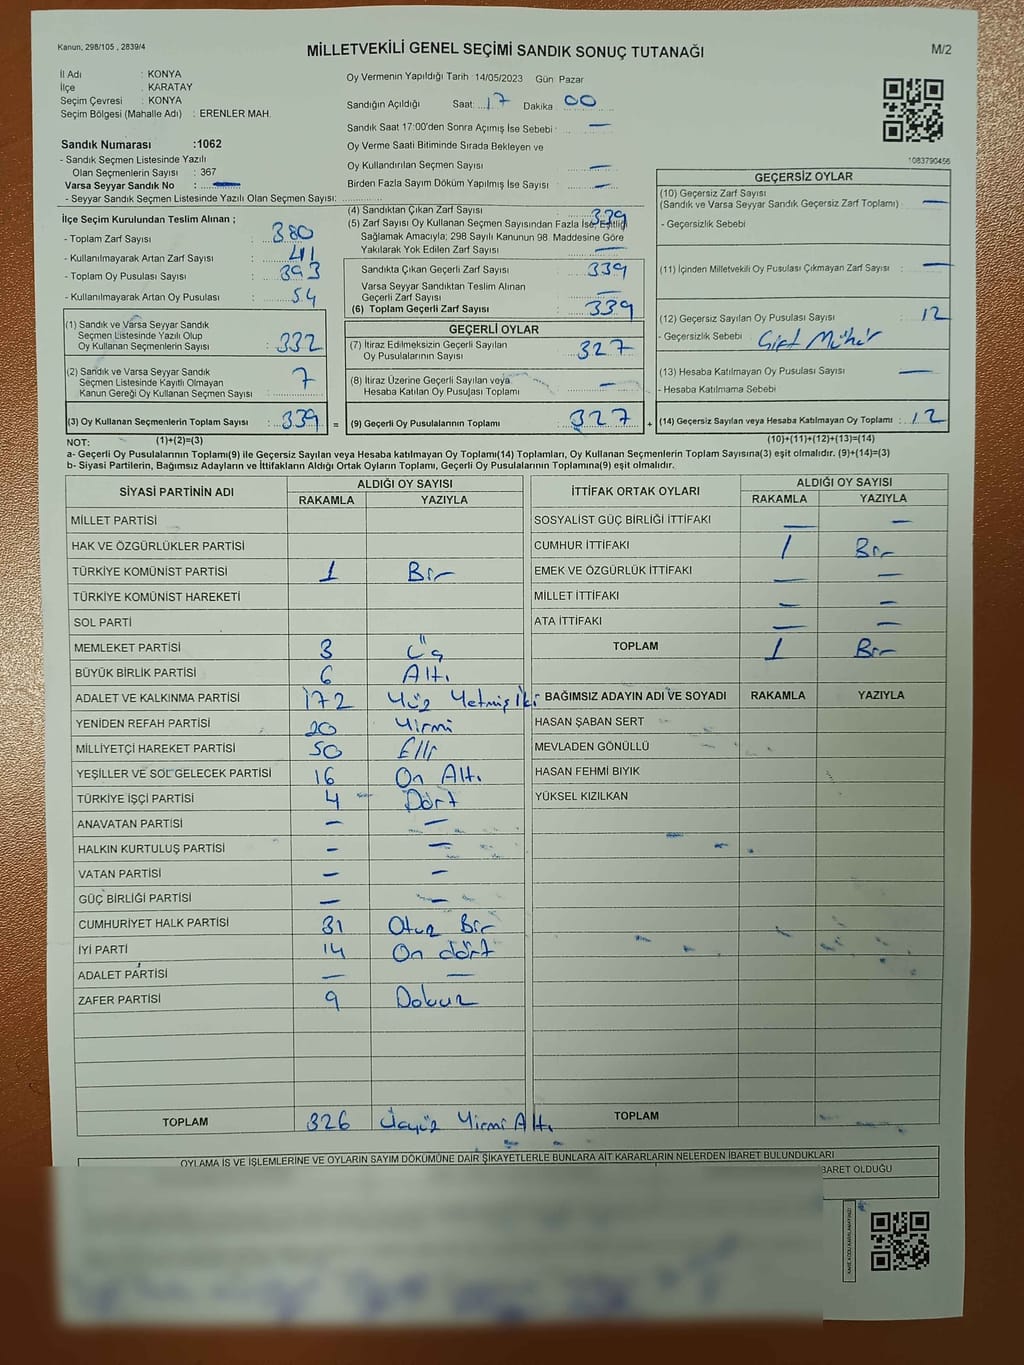 Kanun; 298/105 , 2839/4
MİLLETVEKİLİ GENEL SEÇİMİ SANDIK SONUÇ TUTANAĞI
M/2
İl Adı : KONYA
İlçe : KARATAY
Seçim Çevresi : KONYA
Seçim Bölgesi (Mahalle Adı) : ERENLER MAH.
Sandık Numarası :1062
- Sandık Seçmen Listesinde Yazılı
Olan Seçmenlerin Sayısı : 367
Varsa Seyyar Sandık No : —
- Seyyar Sandık Seçmen Listesinde Yazılı Olan Seçmen Sayısı:
Oy Vermenin Yapıldığı Tarih :14/05/2023 Gün: Pazar
Sandığın Açıldığı Saat: 17 Dakika : 00
Sandık Saat 17:00'den Sonra Açımış İse Sebebi : —
Oy Verme Saati Bitiminde Sırada Bekleyen ve
Oy Kullandırılan Seçmen Sayısı : —
Birden Fazla Sayım Döküm Yapılmış İse Sayısı : —
1083790456
İlçe Seçim Kurulundan Teslim Alınan ;
- Toplam Zarf Sayısı : 380
- Kullanılmayarak Artan Zarf Sayısı : 41
- Toplam Oy Pusulası Sayısı : 393
- Kullanılmayarak Artan Oy Pusulası : 54
(1) Sandık ve Varsa Seyyar Sandık
Seçmen Listesinde Yazılı Olup
Oy Kullanan Seçmenlerin Sayısı : 332
(2) Sandık ve Varsa Seyyar Sandık
Seçmen Listesinde Kayıtlı Olmayan
Kanun Gereği Oy Kullanan Seçmen Sayısı : 7
(3) Oy Kullanan Seçmenlerin Toplam Sayısı : 339 =
(4) Sandıktan Çıkan Zarf Sayısı : 339
(5) Zarf Sayısı Oy Kullanan Seçmen Sayısından Fazla İse, Eşitliği
Sağlamak Amacıyla; 298 Sayılı Kanunun 98. Maddesine Göre
Yakılarak Yok Edilen Zarf Sayısı : —
Sandıkta Çıkan Geçerli Zarf Sayısı : 339
Varsa Seyyar Sandıktan Teslim Alınan
Geçerli Zarf Sayısı : —
(6) Toplam Geçerli Zarf Sayısı : 339
GEÇERLİ OYLAR
(7) İtiraz Edilmeksizin Geçerli Sayılan
Oy Pusulalarının Sayısı : 327
(8) İtiraz Üzerine Geçerli Sayılan veya
Hesaba Katılan Oy Pusulası Toplamı : —
(9) Geçerli Oy Pusulalarının Toplamı : 327 +
GEÇERSİZ OYLAR
(10) Geçersiz Zarf Sayısı
(Sandık ve Varsa Seyyar Sandık Geçersiz Zarf Toplamı) : —
- Geçersizlik Sebebi :
(11) İçinden Milletvekili Oy Pusulası Çıkmayan Zarf Sayısı : —
(12) Geçersiz Sayılan Oy Pusulası Sayısı : 12
- Geçersizlik Sebebi : Çift Mühür
(13) Hesaba Katılmayan Oy Pusulası Sayısı : —
- Hesaba Katılmama Sebebi :
(14) Geçersiz Sayılan veya Hesaba Katılmayan Oy Toplamı : 12
NOT: (1)+(2)=(3) (10)+(11)+(12)+(13)=(14)
a- Geçerli Oy Pusulalarının Toplamı(9) ile Geçersiz Sayılan veya Hesaba katılmayan Oy Toplamı(14) Toplamları, Oy Kullanan Seçmenlerin Toplam Sayısına(3) eşit olmalıdır. (9)+(14)=(3)
b- Siyasi Partilerin, Bağımsız Adayların ve İttifakların Aldığı Ortak Oyların Toplamı, Geçerli Oy Pusulalarının Toplamına(9) eşit olmalıdır.
SİYASİ PARTİNİN ADI ALDIĞI OY SAYISI
RAKAMLA YAZIYLA
MİLLET PARTİSİ
HAK VE ÖZGÜRLÜKLER PARTİSİ
TÜRKİYE KOMÜNİST PARTİSİ 1 Bir
TÜRKİYE KOMÜNİST HAREKETİ
SOL PARTİ
MEMLEKET PARTİSİ 3 Üç
BÜYÜK BİRLİK PARTİSİ 6 Altı
ADALET VE KALKINMA PARTİSİ 172 Yüz Yetmiş İki
YENİDEN REFAH PARTİSİ 20 Yirmi
MİLLİYETÇİ HAREKET PARTİSİ 50 Elli
YEŞİLLER VE SOL GELECEK PARTİSİ 16 On Altı
TÜRKİYE İŞÇİ PARTİSİ 4 Dört
ANAVATAN PARTİSİ — —
HALKIN KURTULUŞ PARTİSİ — —
VATAN PARTİSİ — —
GÜÇ BİRLİĞİ PARTİSİ — —
CUMHURİYET HALK PARTİSİ 31 Otuz Bir
İYİ PARTİ 14 On dört
ADALET PARTİSİ — —
ZAFER PARTİSİ 9 Dokuz
TOPLAM 326 Üçyüz Yirmi Altı
İTTİFAK ORTAK OYLARI ALDIĞI OY SAYISI
RAKAMLA YAZIYLA
SOSYALİST GÜÇ BİRLİĞİ İTTİFAKI — —
CUMHUR İTTİFAKI 1 Bir
EMEK VE ÖZGÜRLÜK İTTİFAKI — —
MİLLET İTTİFAKI — —
ATA İTTİFAKI — —
TOPLAM 1 Bir
BAĞIMSIZ ADAYIN ADI VE SOYADI RAKAMLA YAZIYLA
HASAN ŞABAN SERT
MEVLADEN GÖNÜLLÜ
HASAN FEHMİ BIYIK
YÜKSEL KIZILKAN
TOPLAM
OYLAMA İŞ VE İŞLEMLERİNE VE OYLARIN SAYIM DÖKÜMÜNE DAİR ŞİKAYETLERLE BUNLARA AİT KARARLARIN NELERDEN İBARET BULUNDUKLARI
BARET OLDUĞU